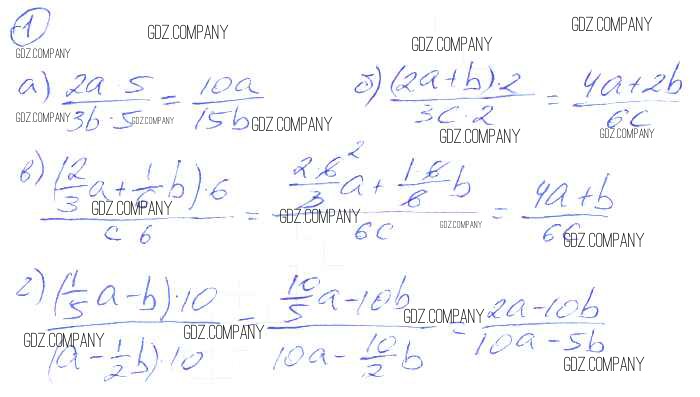 1
GDZ.COMPANY GDZ.COMPANY
GDZ.COMPANY GDZ.COMPANY
а) 2a·5/3b·5 = 10a/15b б) (2a+b)·2/3c·2 = 4a+2b/6c
GDZ.COMPANY GDZ.COMPANY GDZ.COMPANY GDZ.COMPANY GDZ.COMPANY
в) (2/3 a + 1/6 b)·6/c 6 = 2·6²/3 a + 1·6/6 b/6c = 4a+b/6c
GDZ.COMPANY GDZ.COMPANY GDZ.COMPANY GDZ.COMPANY
г) (1/5 a - b)·10/(a - 1/2 b)·10 = 10/5 a - 10b/10a - 10/2 b = 2a-10b/10a-5b
GDZ.COMPANY GDZ.COMPANY GDZ.COMPANY GDZ.COMPANY